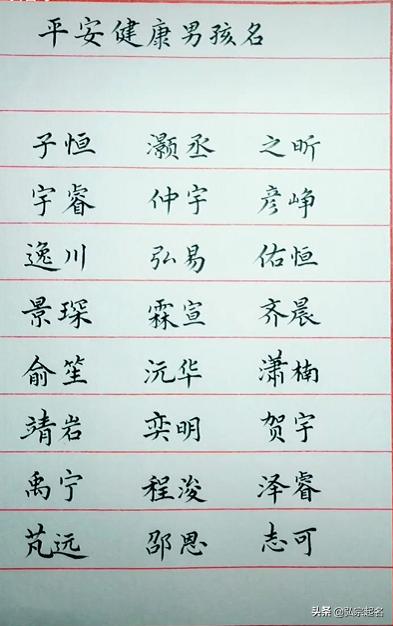 平安健康男孩名
子恒 灏丞 之昕
宇睿 仲宇 彦峥
逸川 弘易 佑恒
景琛 霖宣 齐晨
俞笙 沅华 潇楠
靖岩 奕明 贺宇
禹宁 程浚 泽睿
芃远 邵恩 志可
头条 @弘宗起名